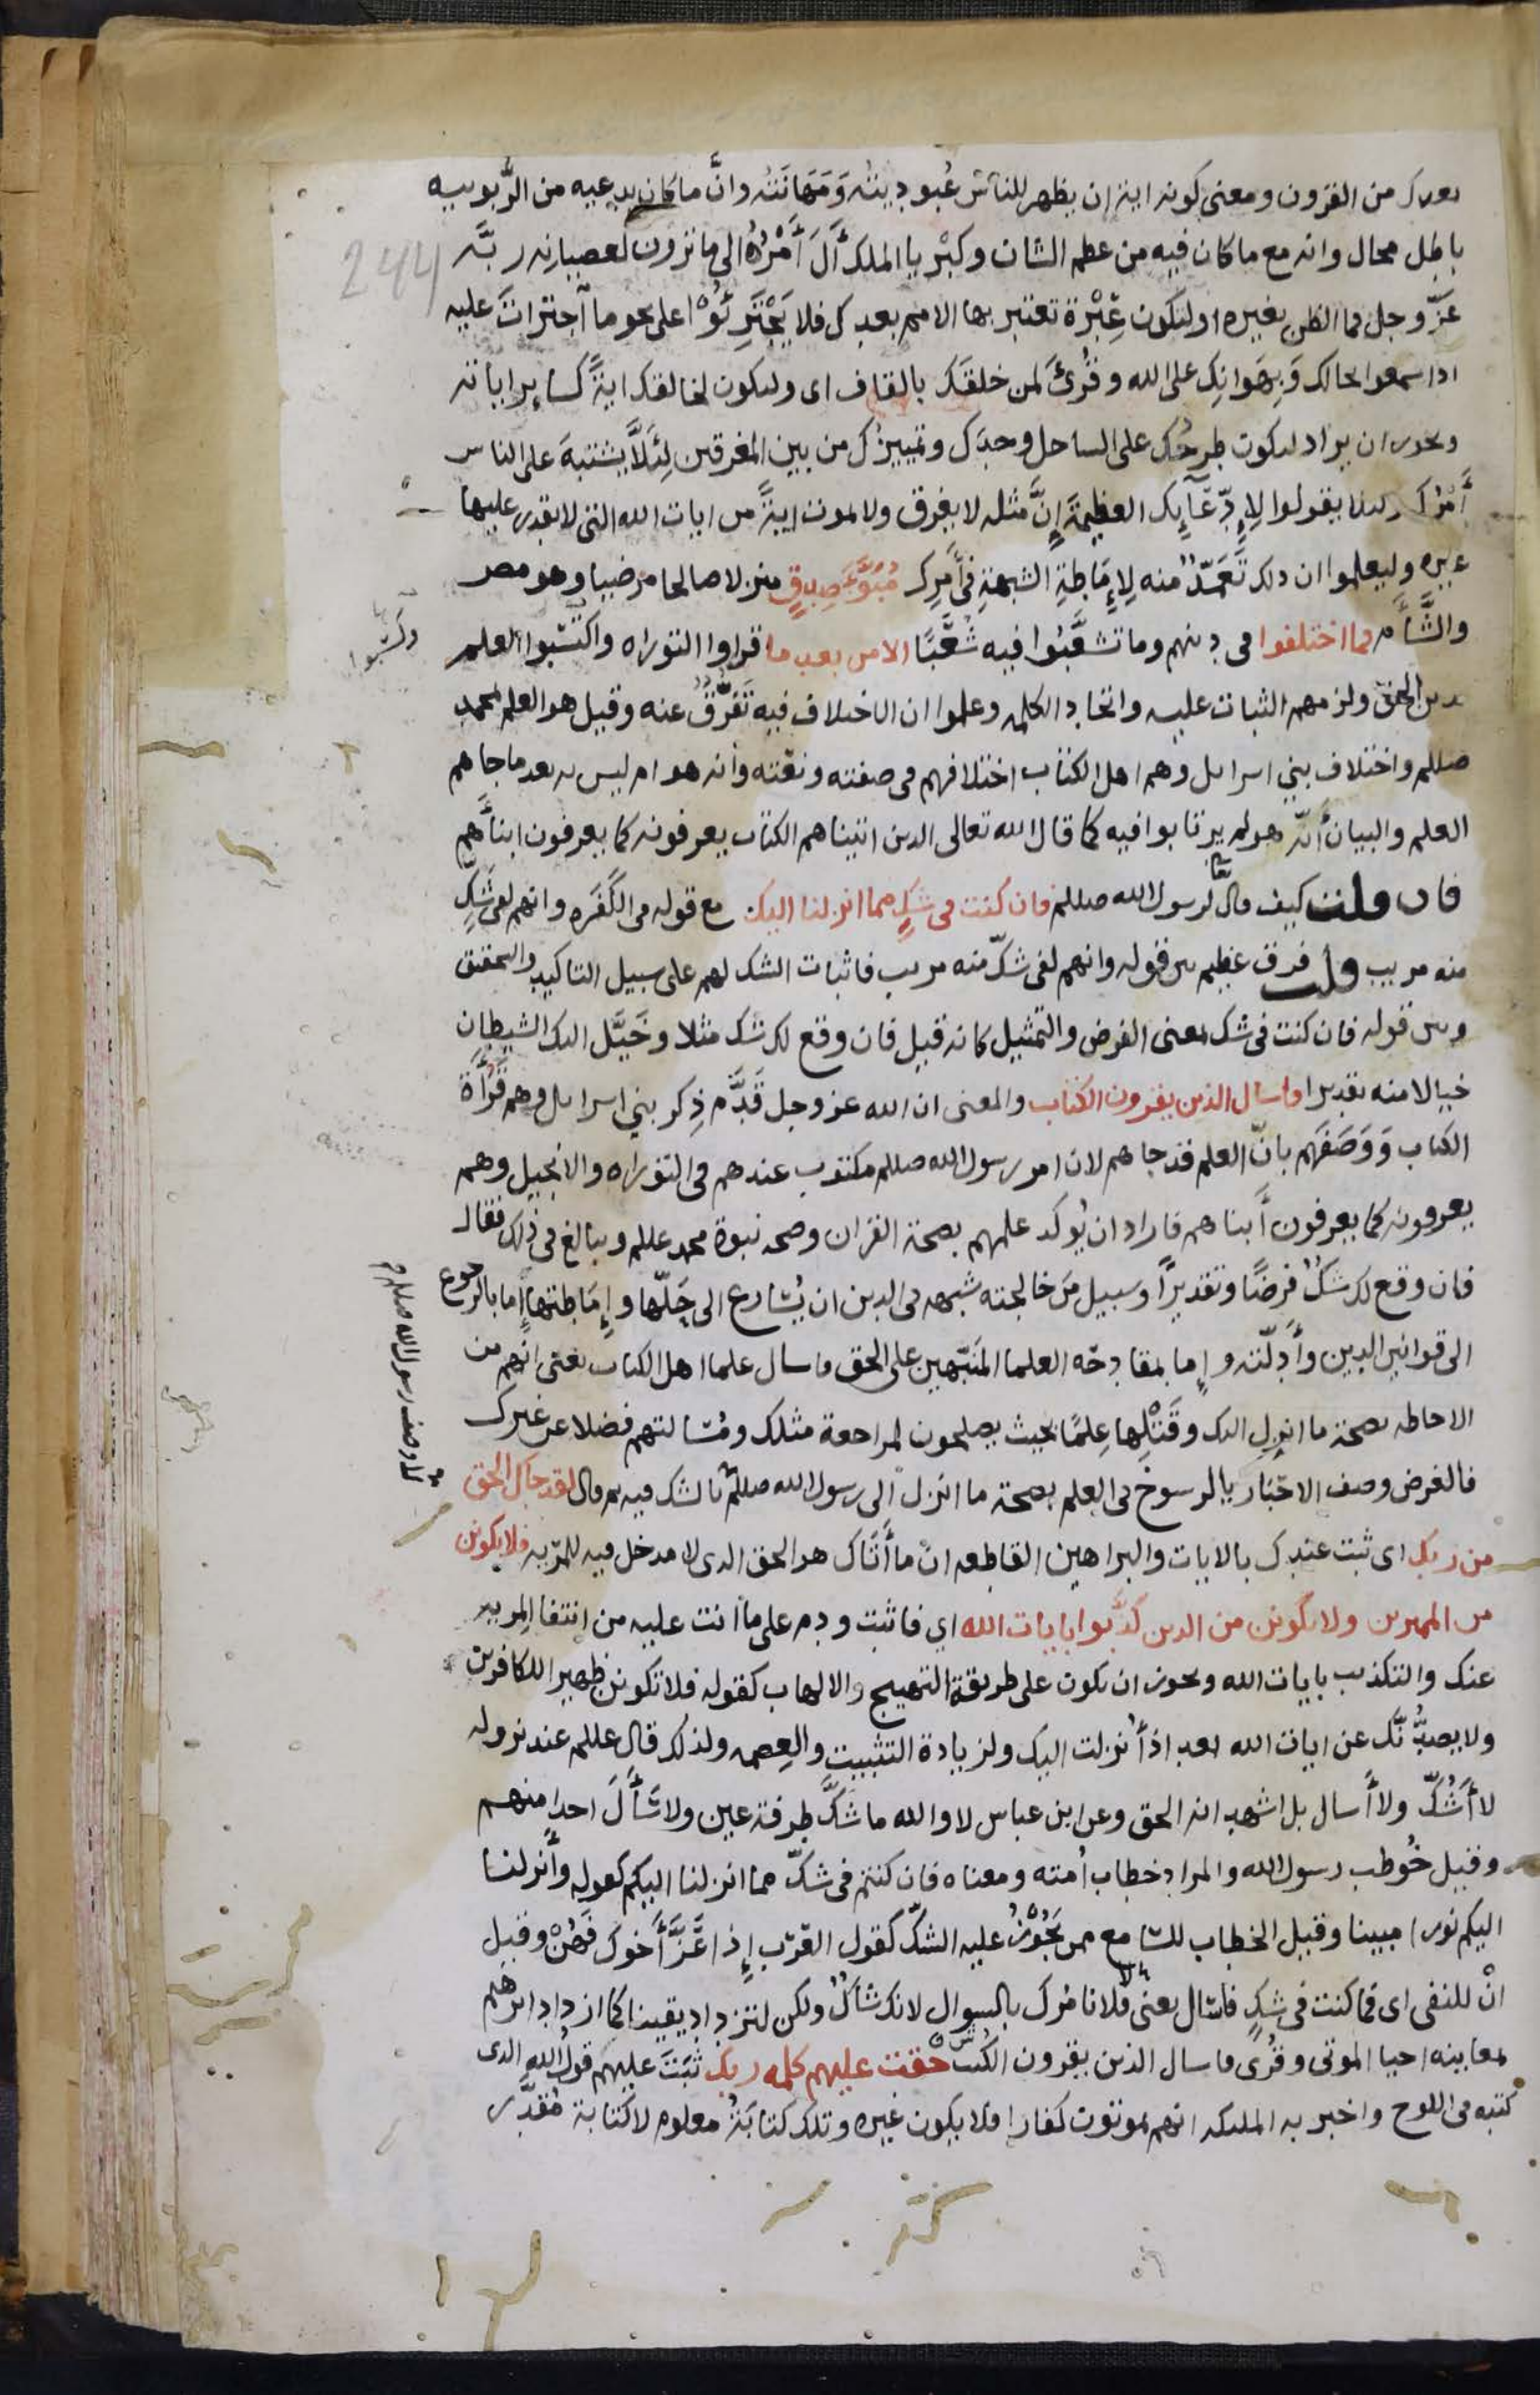 بعدك من القرون ومعنى كونه اية ان يظهر للناس عُبوديتُه وَمَهَانَتُه وانَّ ما كان يدعيه من الرُّبوبيه
244
باطل محال وانه مع ما كان فيه من عظم الشان وكبْرياالملك آلَ أَمْرُهُ الى ما ترون لعصيانه ربَّه
عزّ وجل فما الظن بغيره او لتكون عِبْرة تعتبر بها الامم بعدك فلا يَجْتَرِئُوْا على نحو ما اجترات عليه
اذا سمعوا بحالك وَبِهَوانِك على الله وقُرئَ لمن خلقَك بالقاف اى ولتكون لخالقك ايةً كسايرِ اياته
ويجوز ان يراد ليكون طرحُك على الساحل وحدَك وتمييزُك من بين المغرقين لِئَلَّا يشتبهَ على الناس
أَمْرُك ولئلا يقولوا لِإدِّعَآئِك العظيمةَ إنَّ مثله لا يغرق ولا يموت ايةً من ايات الله التى لا يقدر عليها
غيره وليعلموا ان ذلك تَعَمّدٌ منه لِإمَاطةِ الشبهةِ فى أَمرِك مُبَوَّءَ صِدقٍ منزلا صالحا مرضيا وهو مصر
والشَّأم فما اختلفوا فى دينهم وما تشعَّبُوا فيه شُعَّبًا الا من بعد ما قراوا التوراه واكتسَبوا العلم
وكسبوا
بدين الحق ولزمهم الثبات عليه واتحاد الكلمه وعلموا ان الاختلاف فيه تفرُّقٌ عنه وقيل هو العلم بمحمد
صللم واختلاف بني اسرايل وهم اهل الكتاب اختلافهم فى صفته ونعْته وأنه هو ام ليس به بعد ما جاهم
العلم والبيان أَنّه هو لم يرتابوا فيه كما قال الله تعالى الذين اتيناهم الكتاب يعرفونه كما يعرفون ابنأهم
فان قلت كيف قال لرسول الله صللم فان كنت فى شكٍ مما انزلنا اليك مع قوله فى الكَفَره وانهم لفى شَكٍ
منه مريب قلت فرق عظيم بين قوله وانهم لفى شكّ منه مريب فاثبات الشك لهم على سبيل التاكيد والتحقيق
وبين قوله فان كنت فى شك بمعنى الفرض والتمثيل كانه قيل فان وقع لك شك مثلا وخَيَّل اليك الشيطان
خيالا منه تقديرا فاسال الذين يقرون الكتاب والمعنى ان الله عز وجل قَدَّم ذِكر بني اسرايل وهم قَرَأَة
الكتاب وَوَصَفَهم بانّ العلم قد جاهم لان امر رسول الله صللم مكتوب عندهم فى التوراه والانجيل وهم
يعرفونه كما يعرفون أَبناهم فاراد ان يُوكد علمهم بصحة القران وصحه نبوة محمد عللم ويبالغ فى ذلك فقال
فان وقع لك شكٌ فرضًا وتقديرًا وسبيل مَن خالجته شبهه فى الدين ان يُسارع الى حَلّها وإمَاطتها إما بالرجوع
الى قوانين الدين وأدِلّته وإما بمقادحة العلما المنَبّهين على الحق فاسال علما اهل الكتاب يعنى انهم من
الاحاطه بصحة ما انزل اليك وقَتْلِها عِلمًا بحيث يصلحون لمراجعة مثلك ومُسالتهم فضلا عن غيرك
فالغرض وصف الاحْبَار بالرسوخ فى العلم بصحة ما انزل الى رسول الله صللم بالشك فيه ثم قال لقد جاك الحق
لا وصف رسول الله صللم
من ربك اى ثبت عندك بالايات والبراهين القاطعه انّ ما أَتَاك هو الحق الذى لا مدخل فيه للمريه فلا تكونن
من الممترين ولا تكونن من الذين كذَّبوا بايات الله اي فاثبت ودم على ما انت عليه من انتفا المريه
عنك والتكذيب بايات الله ويجوز ان تكون على طريقة التهييج والالهاب كقوله فلا تكونن ظهيرا للكافرين
ولا يصدُّنّك عن ايات الله بعد اذ أُنزلت اليك ولزيادة التثبيت والعِصمه ولذلك قال عللم عند نزوله
لا أَشُكّ ولا أَسال بل اشهد انه الحق وعن ابن عباس لا والله ما شكَّ طرفة عين ولا سَأَلَ احدا منهم
وقيل خُوطب رسول الله والمراد خطاب أمته ومعناه فان كنتم فى شكّ مما انزلنا اليكم كقوله وأَنزلنا
اليكم نورا مبينا وقيل الخطاب للسامع ممن يَجُوْزُ عليه الشكّ كقول العَرب إذا عَزَّ أَخوك فَهُنْ وقيل
انْ للنفى اى فما كنت فى شك فاسال يعنى لا نامُرك بالسوال لانك شاكٌ ولكن لتزداد يقينا كما ازداد ابرهيم
بمعاينه احيا الموتى وقُرى فاسال الذين يقرون الكُتب حقت عليهم كلمه ربك ثبَتَ عليهم قولُ الله الذى
كتبه فى اللوح واخبر به الملئكه انهم يموتون كفارا فلا يكون غيره وتلك كتابَةُ معلوم لا كتابة مُقدَّر